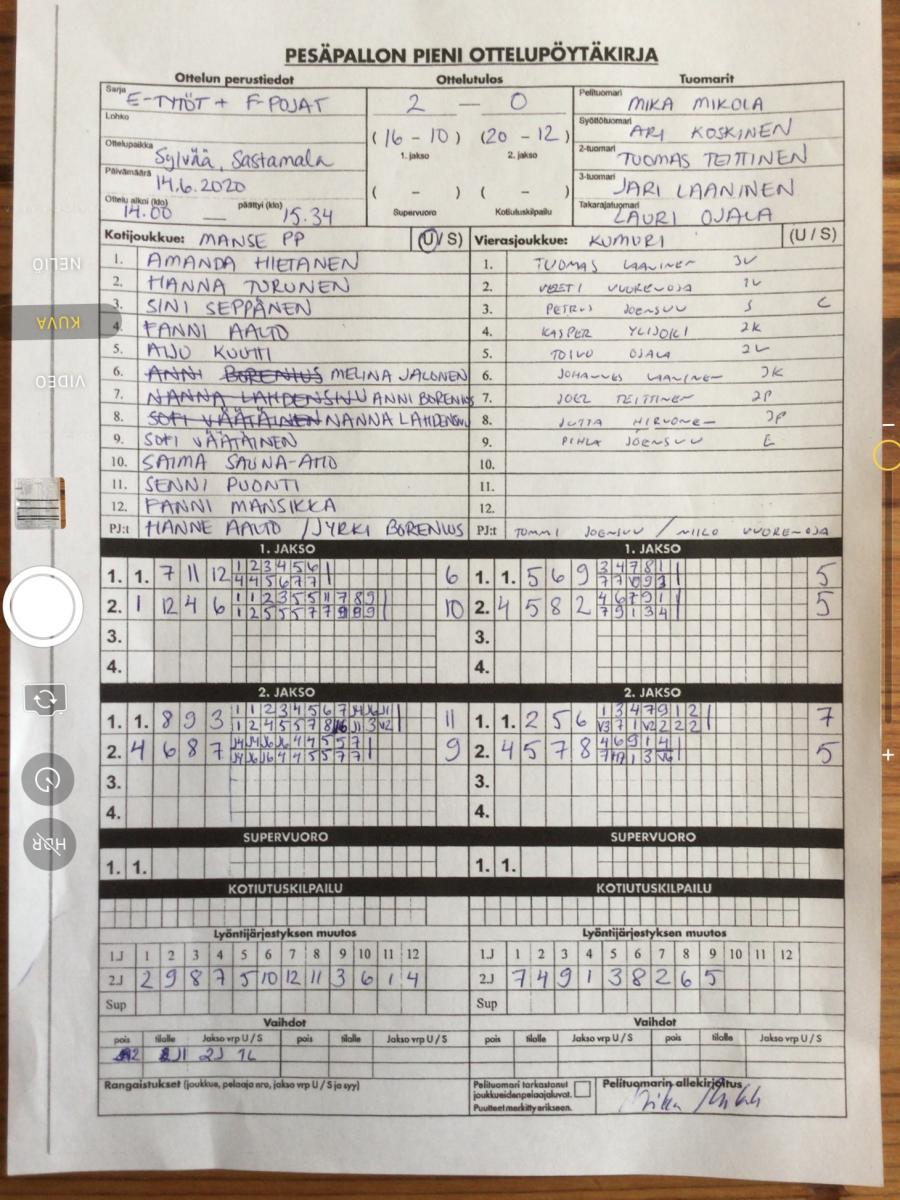 PESÄPALLON PIENI OTTELUPÖYTÄKIRJA
Ottelun perustiedot Ottelutulos Tuomarit
Sarja E-TYTÖT + F-POJAT
Lohko
Ottelupaikka Sylvää, Sastamala
Päivämäärä 14.6.2020
Ottelu alkoi (klo) 14.00 — päättyi (klo) 15.34
2 — 0
(16 - 10) (20 - 12)
1. jakso 2. jakso
( - ) ( - )
Supervuoro Kotiutuskilpailu
Pelituomari MIKA MIKOLA
Syöttötuomari ARI KOSKINEN
2-tuomari TUOMAS TEITTINEN
3-tuomari JARI LAANINEN
Takarajatuomari LAURI OJALA
Kotijoukkue: MANSE PP (U/S)
1. AMANDA HIETANEN
2. HANNA TURUNEN
3. SINI SEPPÄNEN
4. FANNI AALTO
5. AIJU KUUTTI
6. ANNI BORENIUS MELINA JALONEN
7. NANNA LAHDENSIVU ANNI BORENIUS
8. SOFI VÄÄTÄINEN NANNA LAHDENSIVU
9. SOFI VÄÄTÄINEN
10. SAIMA SAUNA-AHO
11. SENNI PUONTI
12. FANNI MANSIKKA
PJ:t HANNE AALTO / JYRKI BORENIUS
Vierasjoukkue: KUMURI (U / S)
1. TUOMAS LAANINEN 3V
2. VEETI VUORENOJA 1V
3. PETRUS JOENSUU S C
4. KASPER YLIJOKI 2K
5. TOIVO OJALA 2V
6. JOHANNES LAANINEN 3K
7. JOEL TEITTINEN 2P
8. JUTTA HIRVONEN 3P
9. PIHLA JOENSUU E
10.
11.
12.
PJ:t TOMMI JOENSUU / NIILO VUORENOJA
1. JAKSO 1. JAKSO
1. 1. 7 11 12 6
2. 1 12 4 6 10
3.
4.
1. 1. 5 6 9 5
2. 4 5 8 2 5
3.
4.
2. JAKSO 2. JAKSO
1. 1. 8 9 3 11
2. 4 6 8 7 9
3.
4.
1. 1. 2 5 6 7
2. 4 5 7 8 5
3.
4.
SUPERVUORO SUPERVUORO
1. 1. 1. 1.
KOTIUTUSKILPAILU KOTIUTUSKILPAILU
Lyöntijärjestyksen muutos Lyöntijärjestyksen muutos
1.J 1 2 3 4 5 6 7 8 9 10 11 12
2.J 2 9 8 7 5 10 12 11 3 6 1 4
Sup
1.J 1 2 3 4 5 6 7 8 9 10 11 12
2.J 7 4 9 1 3 8 2 6 5
Sup
Vaihdot Vaihdot
pois tilalle Jakso vrp U / S pois tilalle Jakso vrp U / S
pois tilalle Jakso vrp U / S pois tilalle Jakso vrp U / S
Rangaistukset (joukkue, pelaaja nro, jakso vrp U / S ja syy)
Pelituomari tarkastanut
joukkueiden pelaajaluvat.
Puutteet merkitty erikseen.
Pelituomarin allekirjoitus
NELIÖ
KUVA
VIDEO
HDR